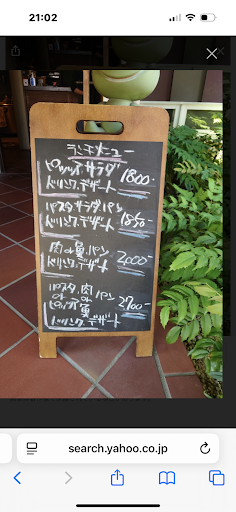 21:02
ランチメニュー
ピッツァ サラダ
ドリンク. デザート 1800-
パスタ サラダ パン
ドリンク. デザート 1850-
肉or魚. パン
ドリンク. デザート 2,000-
パスタ. 肉 パン
or or
ピッツァ 魚 2700-
ドリンク. デザート
search.yahoo.co.jp